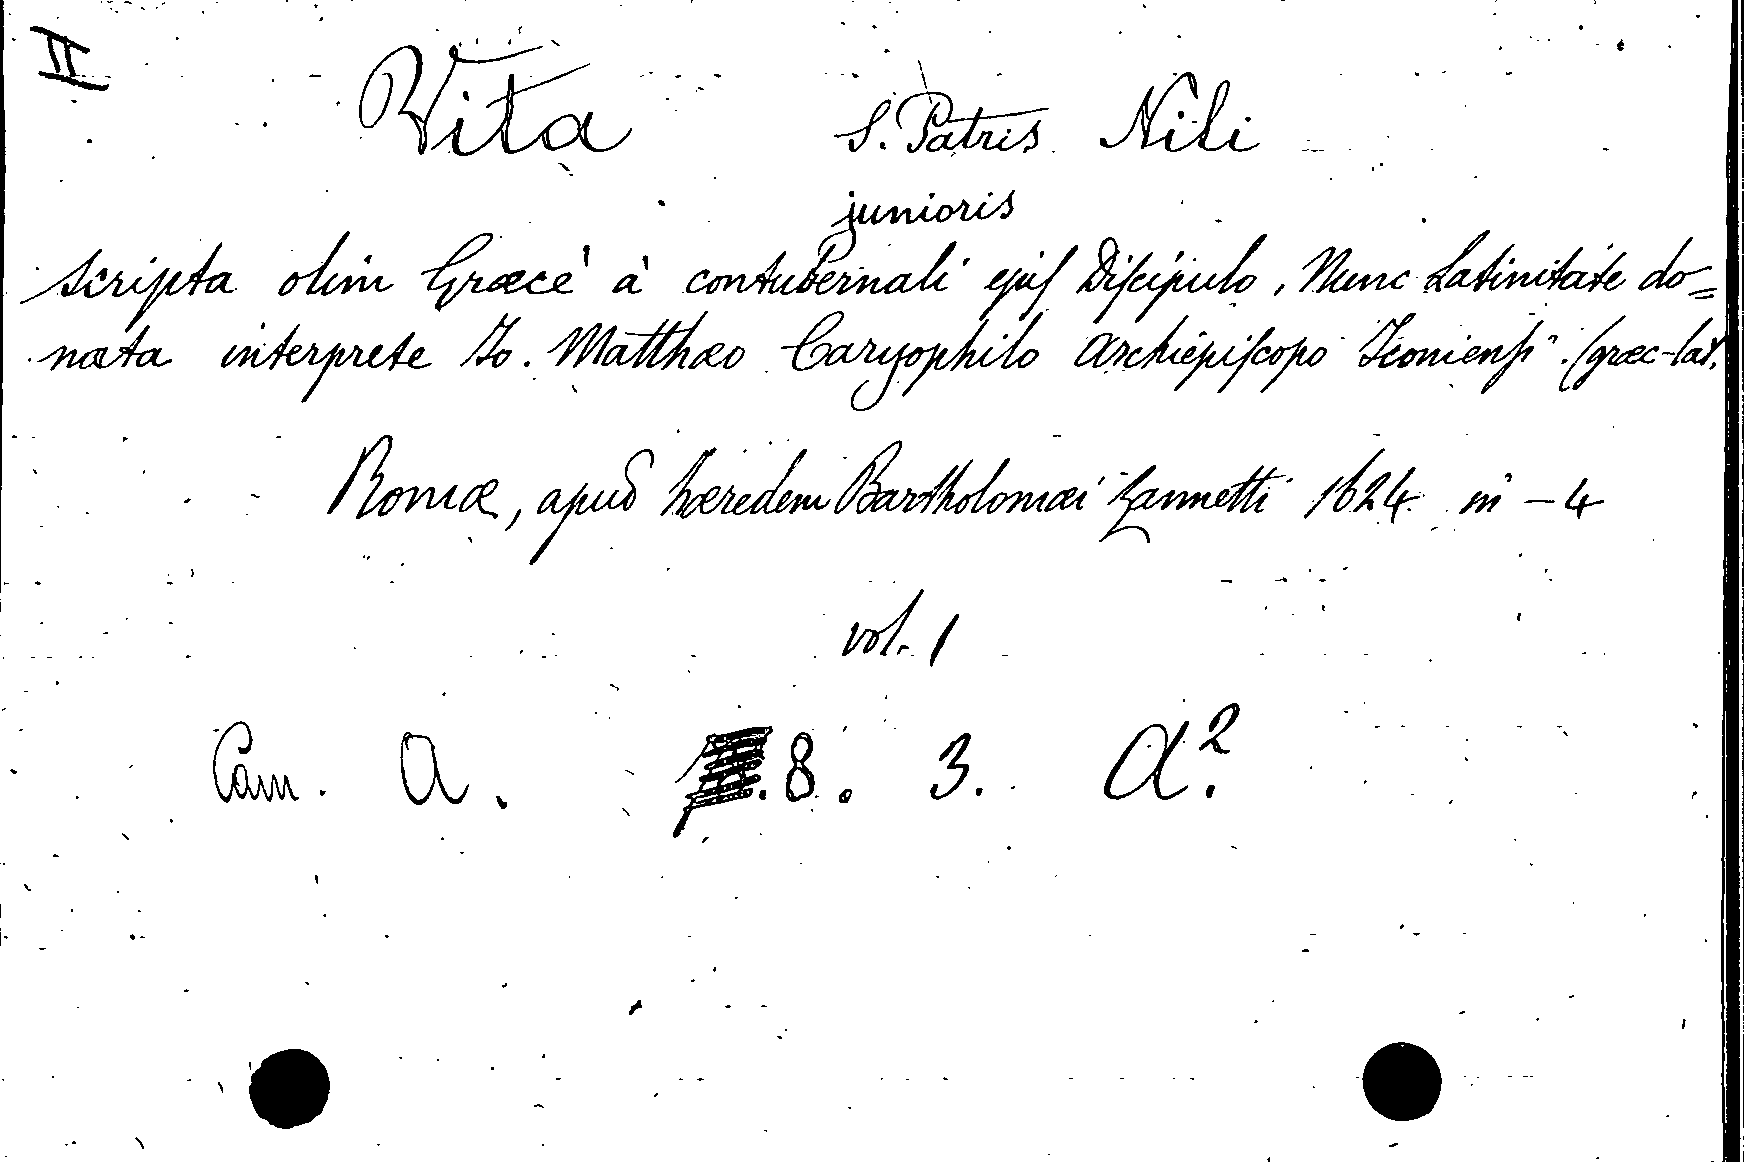 II
Vita S. Patris Nili
junioris
scripta olim Græcè à contubernali ejuſ Diſcipulo, Nunc Latinitate do=
nata interprete Io. Matthæo Caryophilo Archiepiſcopo Iconienſi. (græc-lat.
Romæ, apud hæredem Bartholomæi Zannetti 1624 in - 4
vol. 1
Cam. A. .8. 3. A².